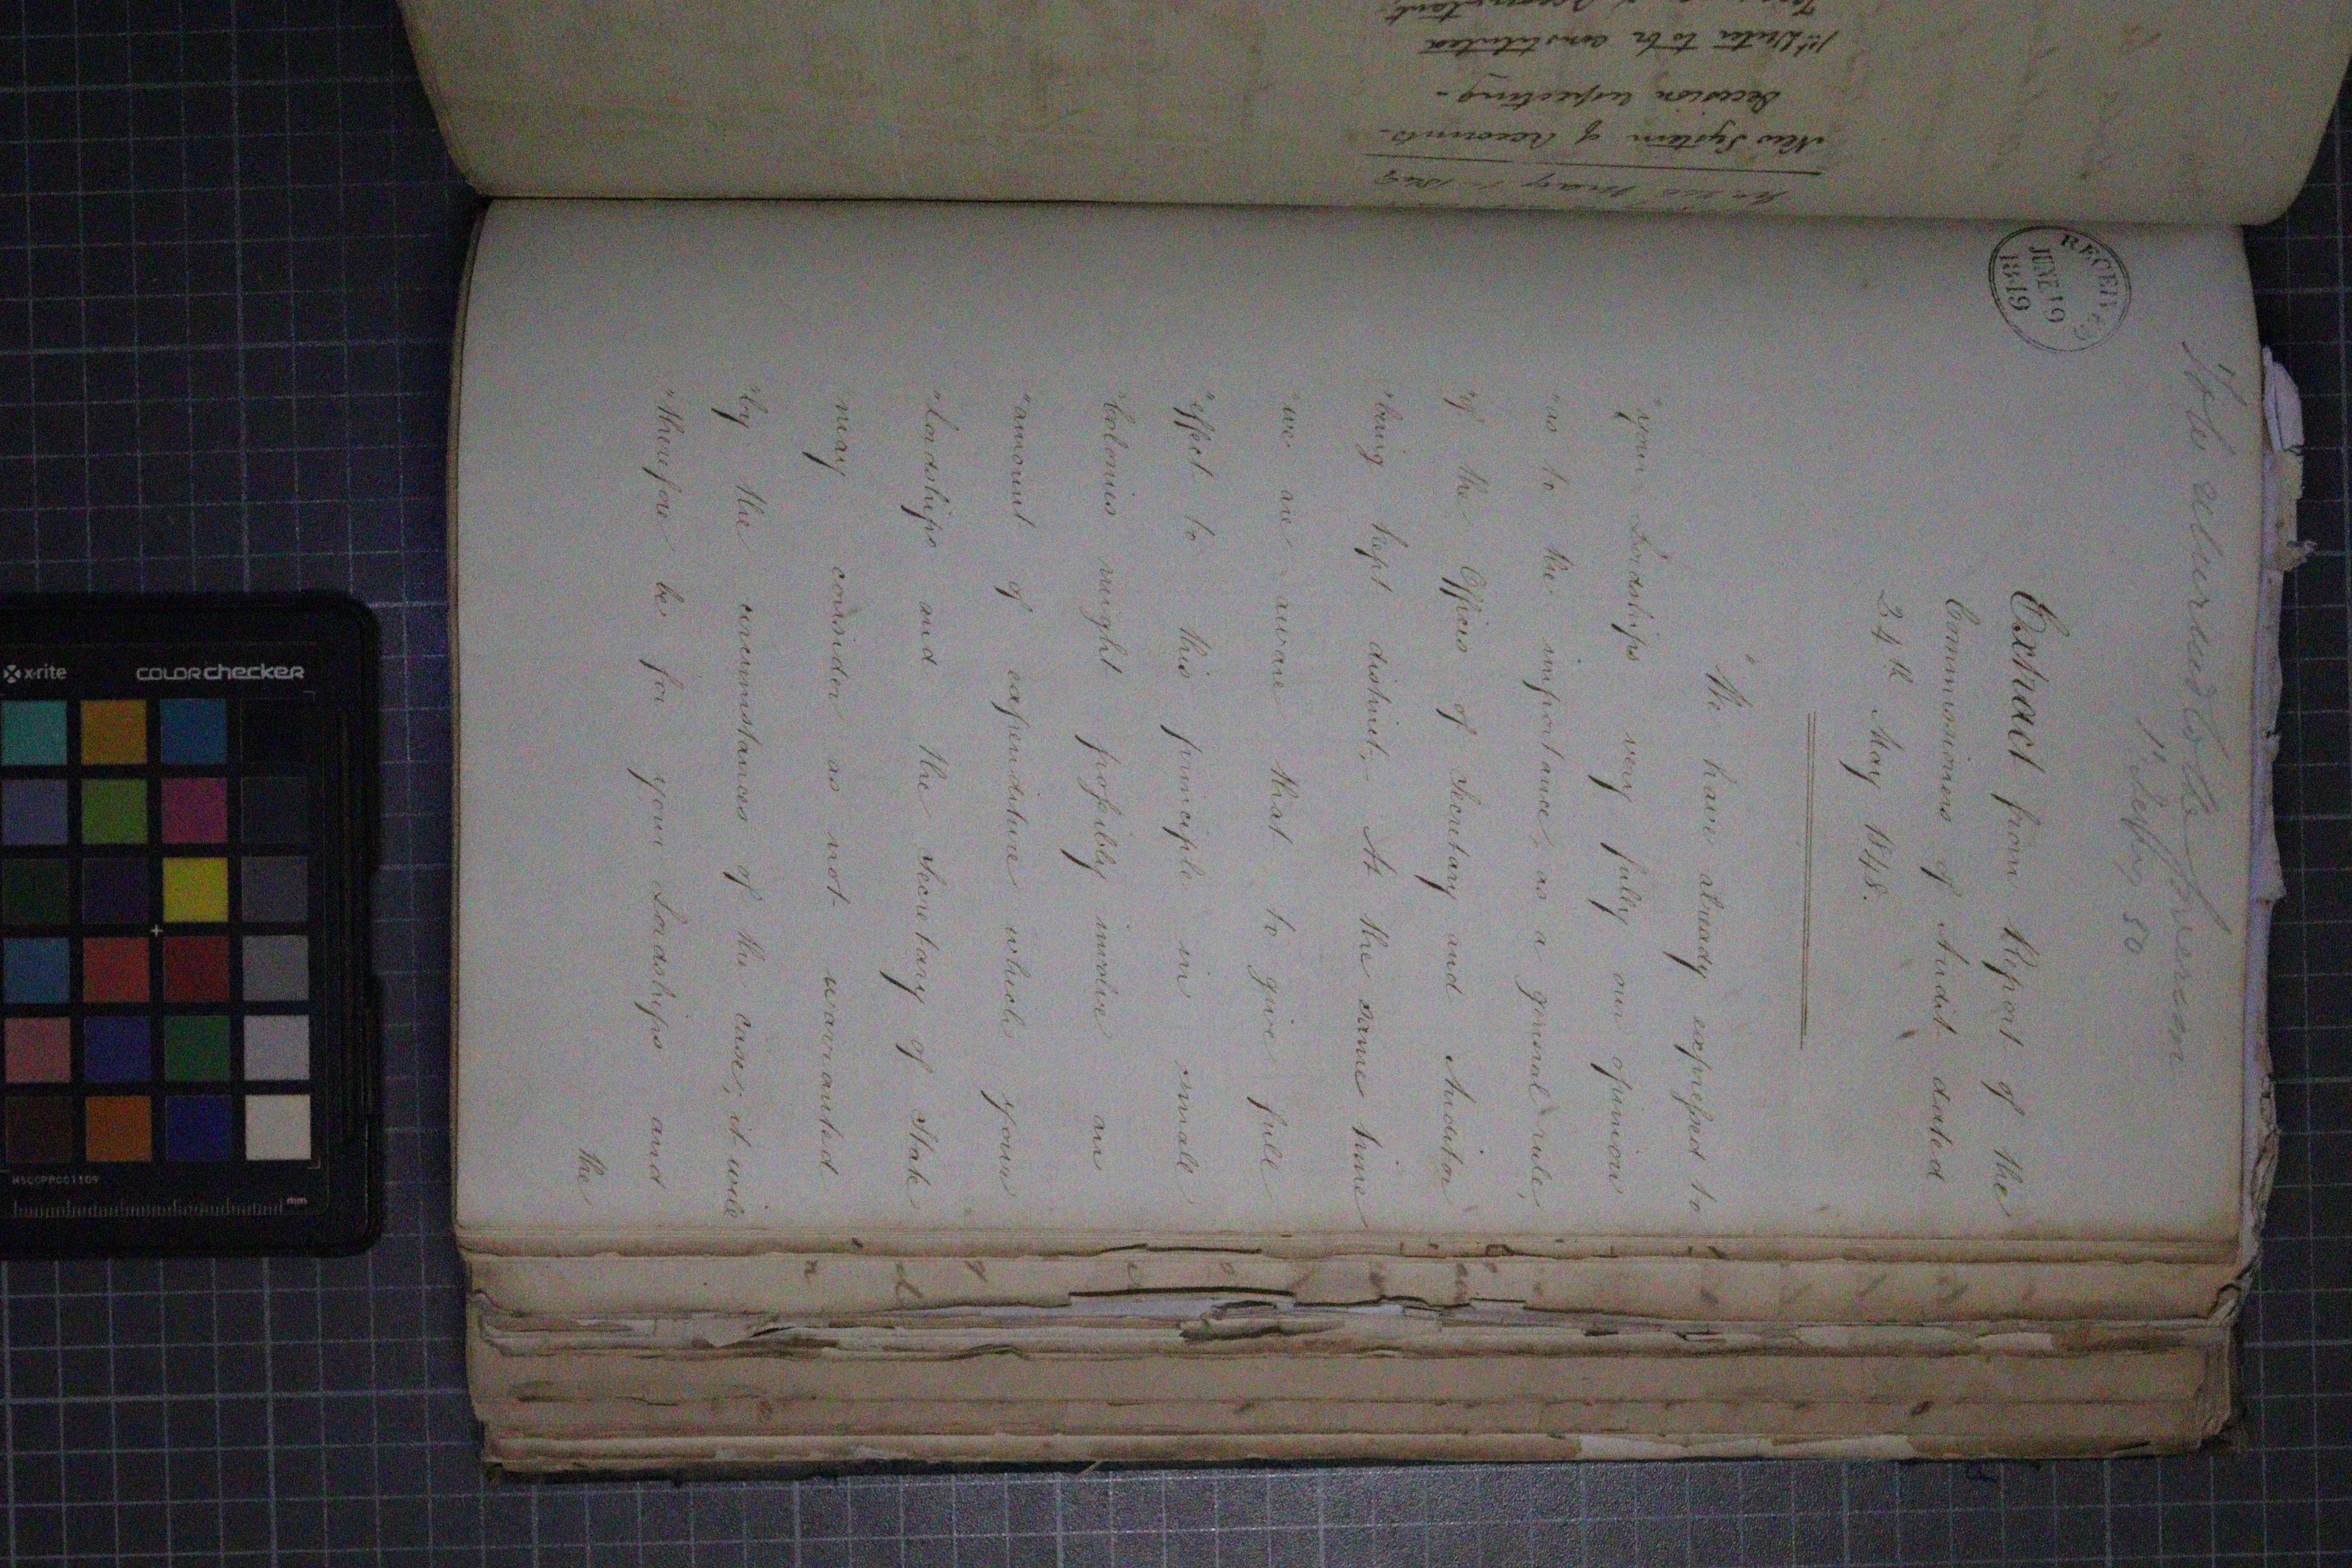 RECEIVED
JUNE 19
1849
Extract from Report of the
Commissioners of Audit dated
24th May 1848.
"We have already expressed to
"your Lordships very fully our opinion
"as to the importance, as a general rule,
"of the Offices of Secretary and Auditor
"being kept distinct. At the same time
"we are aware that to give full
"effect to this principle in small
"Colonies might possibly involve an
"amount of expenditure which your
"Lordships and the Secretary of State
"may consider as not warranted
"by the circumstances of the case; it will
"therefore be for your Lordships and
the
New System of Accounts-
Decision respecting-
1st Writer to be constituted
Accountant
x-rite
COLORchecker
MSCCPPCC1109
mm